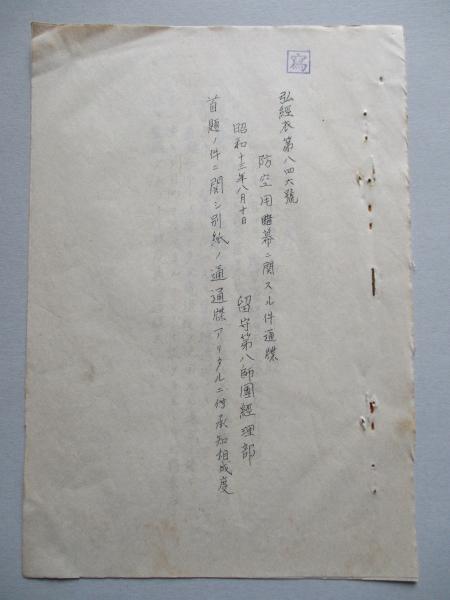 寫
弘經衣第八四六號
防空用暗幕ニ関スル件通牒
昭和十三年八月十日
留守第八師團經理部
首題ノ件ニ関シ別紙ノ通通牒アリタルニ付承知相成度